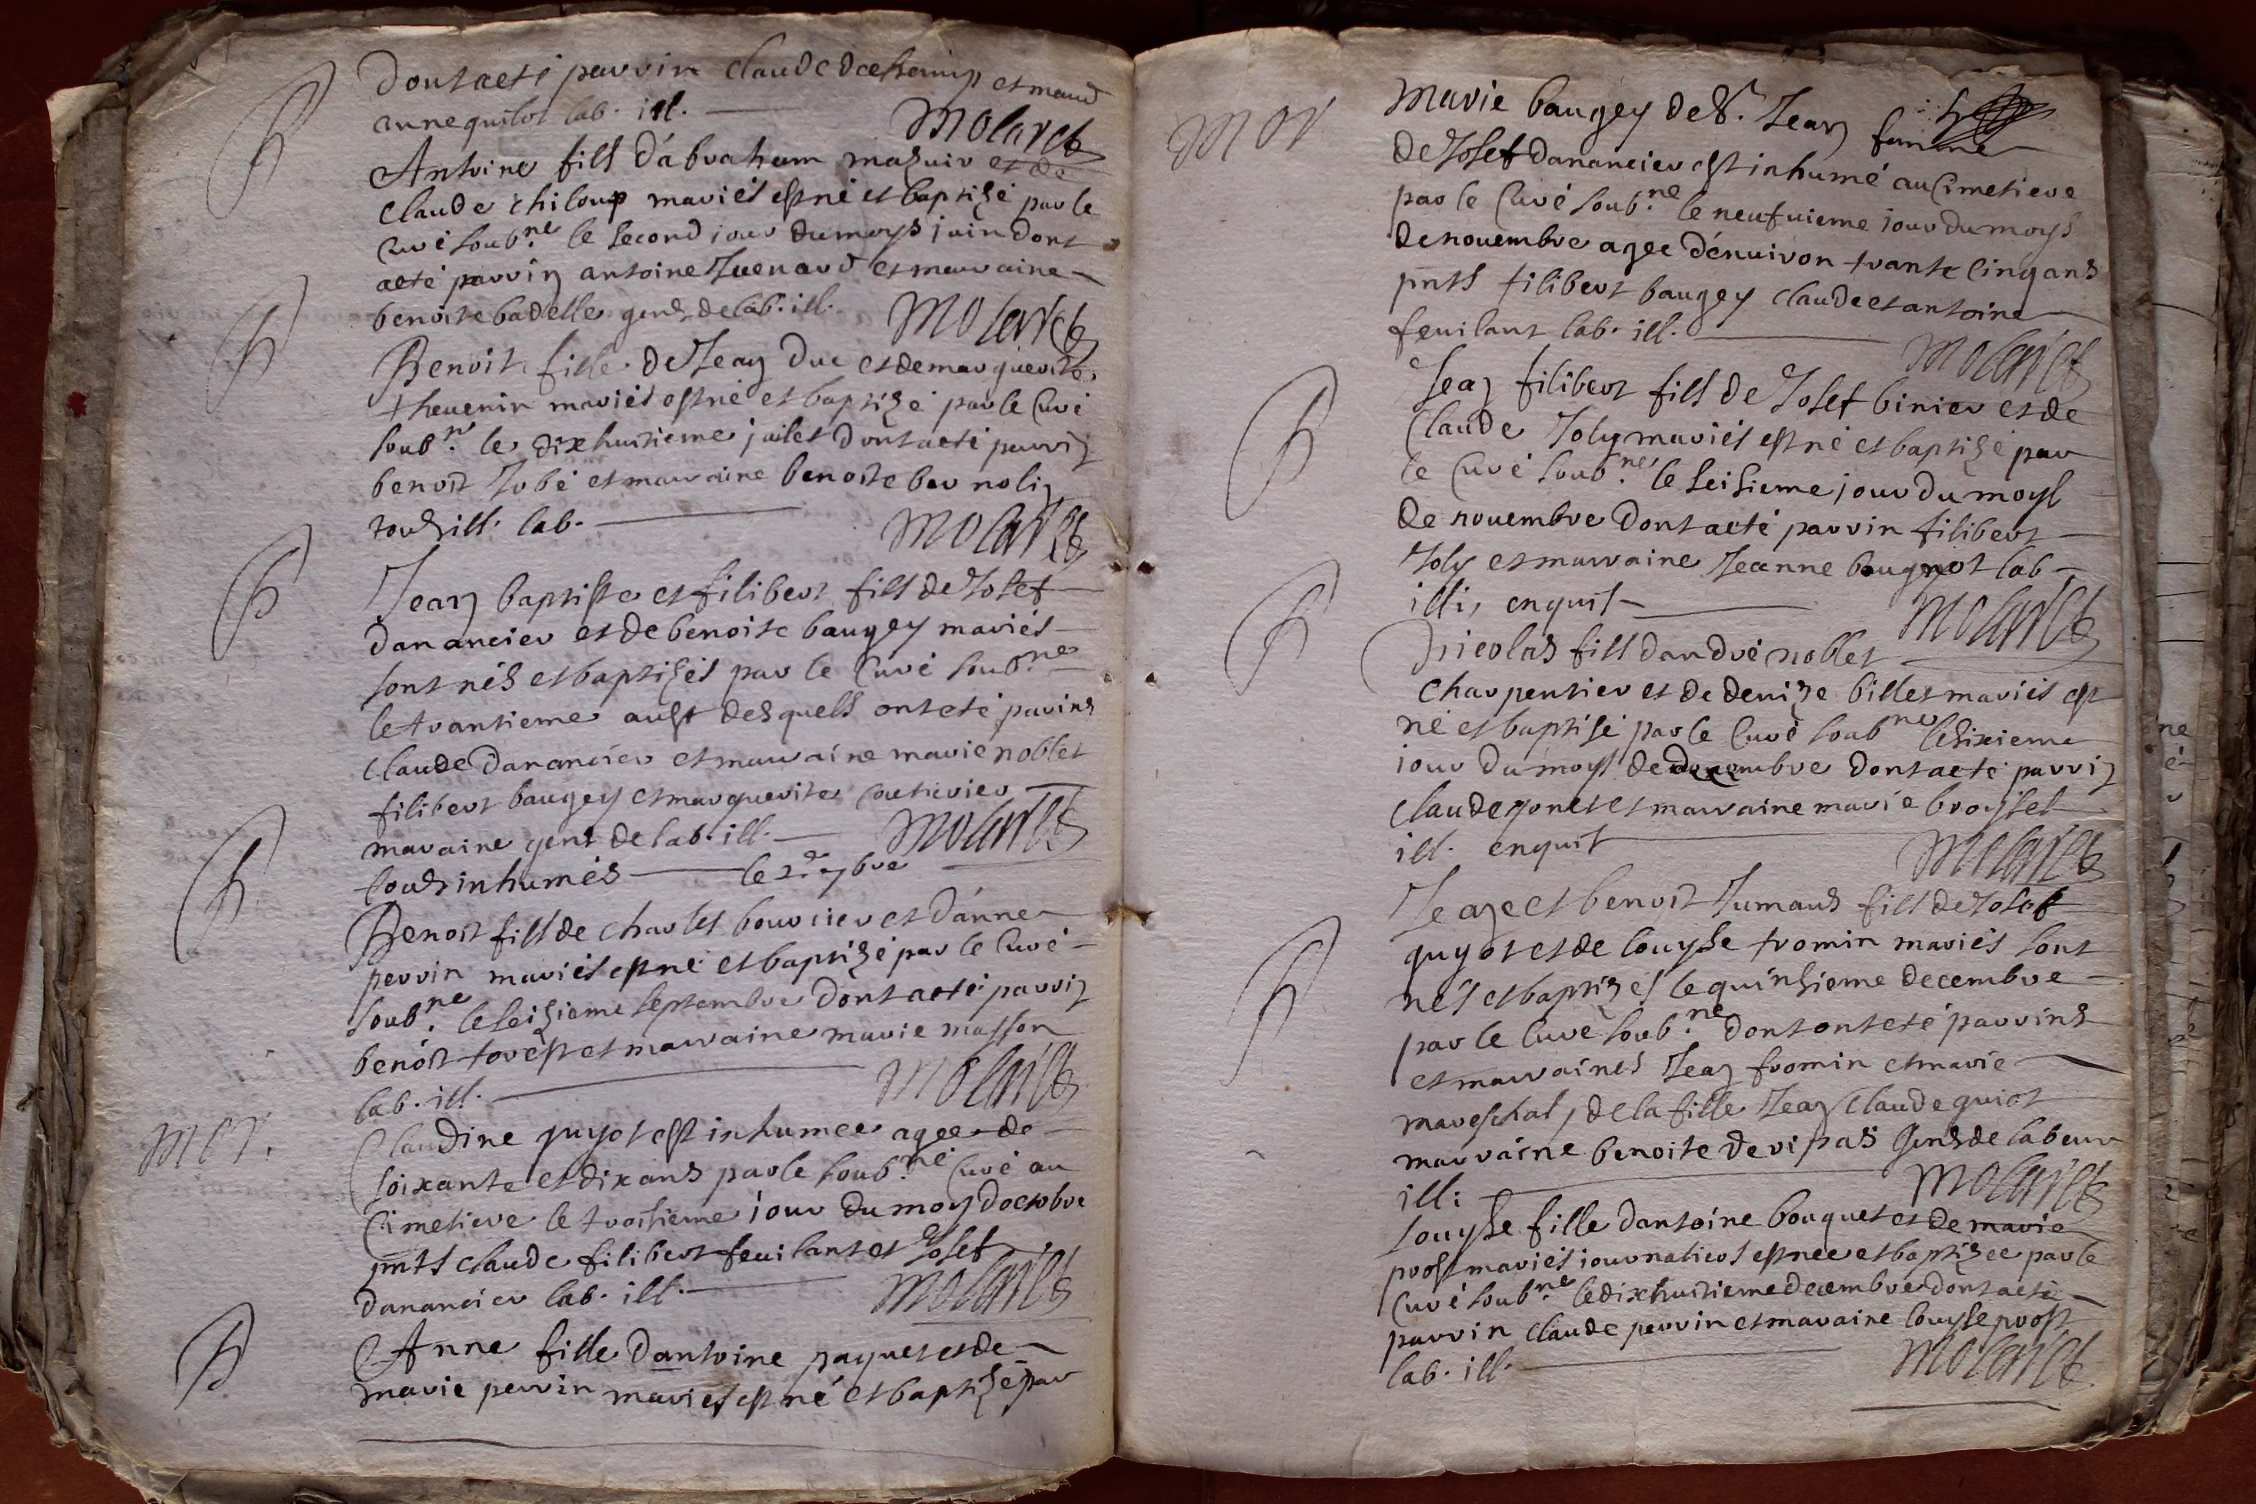 dont a eté parrin claude dechamp et maud
anne guilot lab. ill.
Molaret
Antoine fils d'abraham mazuir et de
claude chiloup mariés est né et baptizé par le
curé soub.ne le second jour du moys juin dont
a eté parrin antoine Juenard et marraine
benoite badelle gens de lab. ill.
Molaret
Benoit fille de Jean Duc et de marguerite
theuenin mariés est né et baptizé par le curé
soub.ne le dixhuitieme juilet dont a eté parrin
benoit Jobé et marraine benoite bernolin
tous ill. lab.
Molaret
Jean baptiste et filibert fils de Josef
danancier et de benoite baugey mariés
sont nés et baptizés par le curé soub.ne
le trantieme aust desquels ont eté parins
claude danancier et marraine marie noblet
filibert baugey et marguerite
maraine gens de lab. ill.
Molaret
tous inhumés le 2.de 7bre
Benoit fils de charles bouvier et d'anne
perrin mariés est né et baptizé par le curé
soub.ne le seizieme septembre dont a eté parrin
benoit forest et marraine marie masson
lab. ill.
Molaret
mor.
Claudine guyot est inhumee agee de
soixante et dix ans par le soub.né curé au
cimetiere le troisieme jour du moys d'octobre
pnts claude filibert feuilant et Josef
danancier lab. ill.
Molaret
Anne fille d'antoine paquet et de
marie perrin mariés est né et baptizé par
mor
Marie baugey de St. Jean famme
de Josef danancier est inhumé au cimetiere
par le curé soub.ne le neufuieme jour du moys
de nouembre agee d'enuiron trante cinq ans
pnts filibert baugey claude et antoine
feuilant lab. ill.
Molaret
Jean filibert fils de Josef binier et de
claude Joly mariés est né et baptizé par
le curé soub.né le seisieme jour du moys
de nouembre dont a eté parrin filibert
Joly et marraine Jeanne baugnot lab
illi, enquis
Molaret
Nicolas fils d'andré noblet
charpentier et de denize billet mariés est
né et baptisé par le curé soub.ne le sixieme
jour du moys de decembre dont a eté parrin
claude gonet et marraine marie broysset
ill. enquis
Molaret
Jean et benoit Jumaus fils de Josef
guyot et de louyse fromin mariés sont
nés et baptizés le quinsieme decembre
par le curé soub.né dont ont eté parrins
et marraines Jean fromin et marie
mareschal, de la fille Jean claude guiot
marraine benoite devipas Gens de labeur
ill:
Molaret
Louyse fille d'antoine bouquet et de marie
prost mariés journaliers est nee et baptizee par le
curé soub.ne le dixhuitieme decembre dont a eté
parrin claude perrin et maraine louyse prost
lab. ill.
Molaret